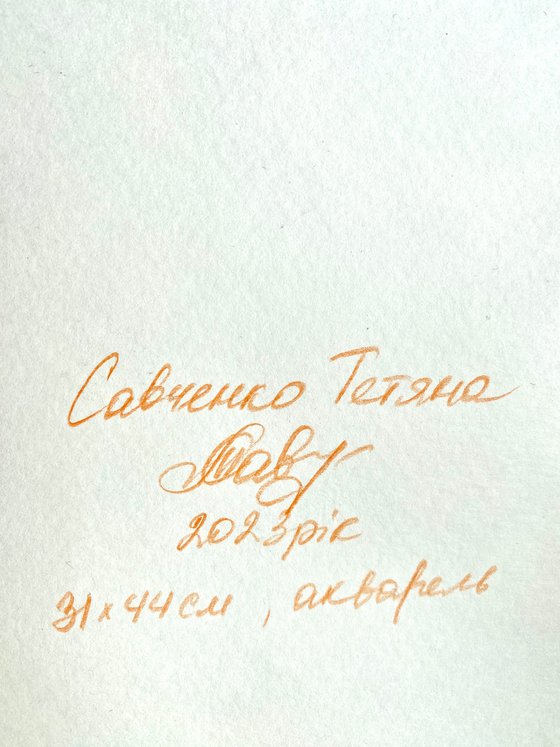 Савченко Тетяна
2023рік
31 x 44 см , акварель